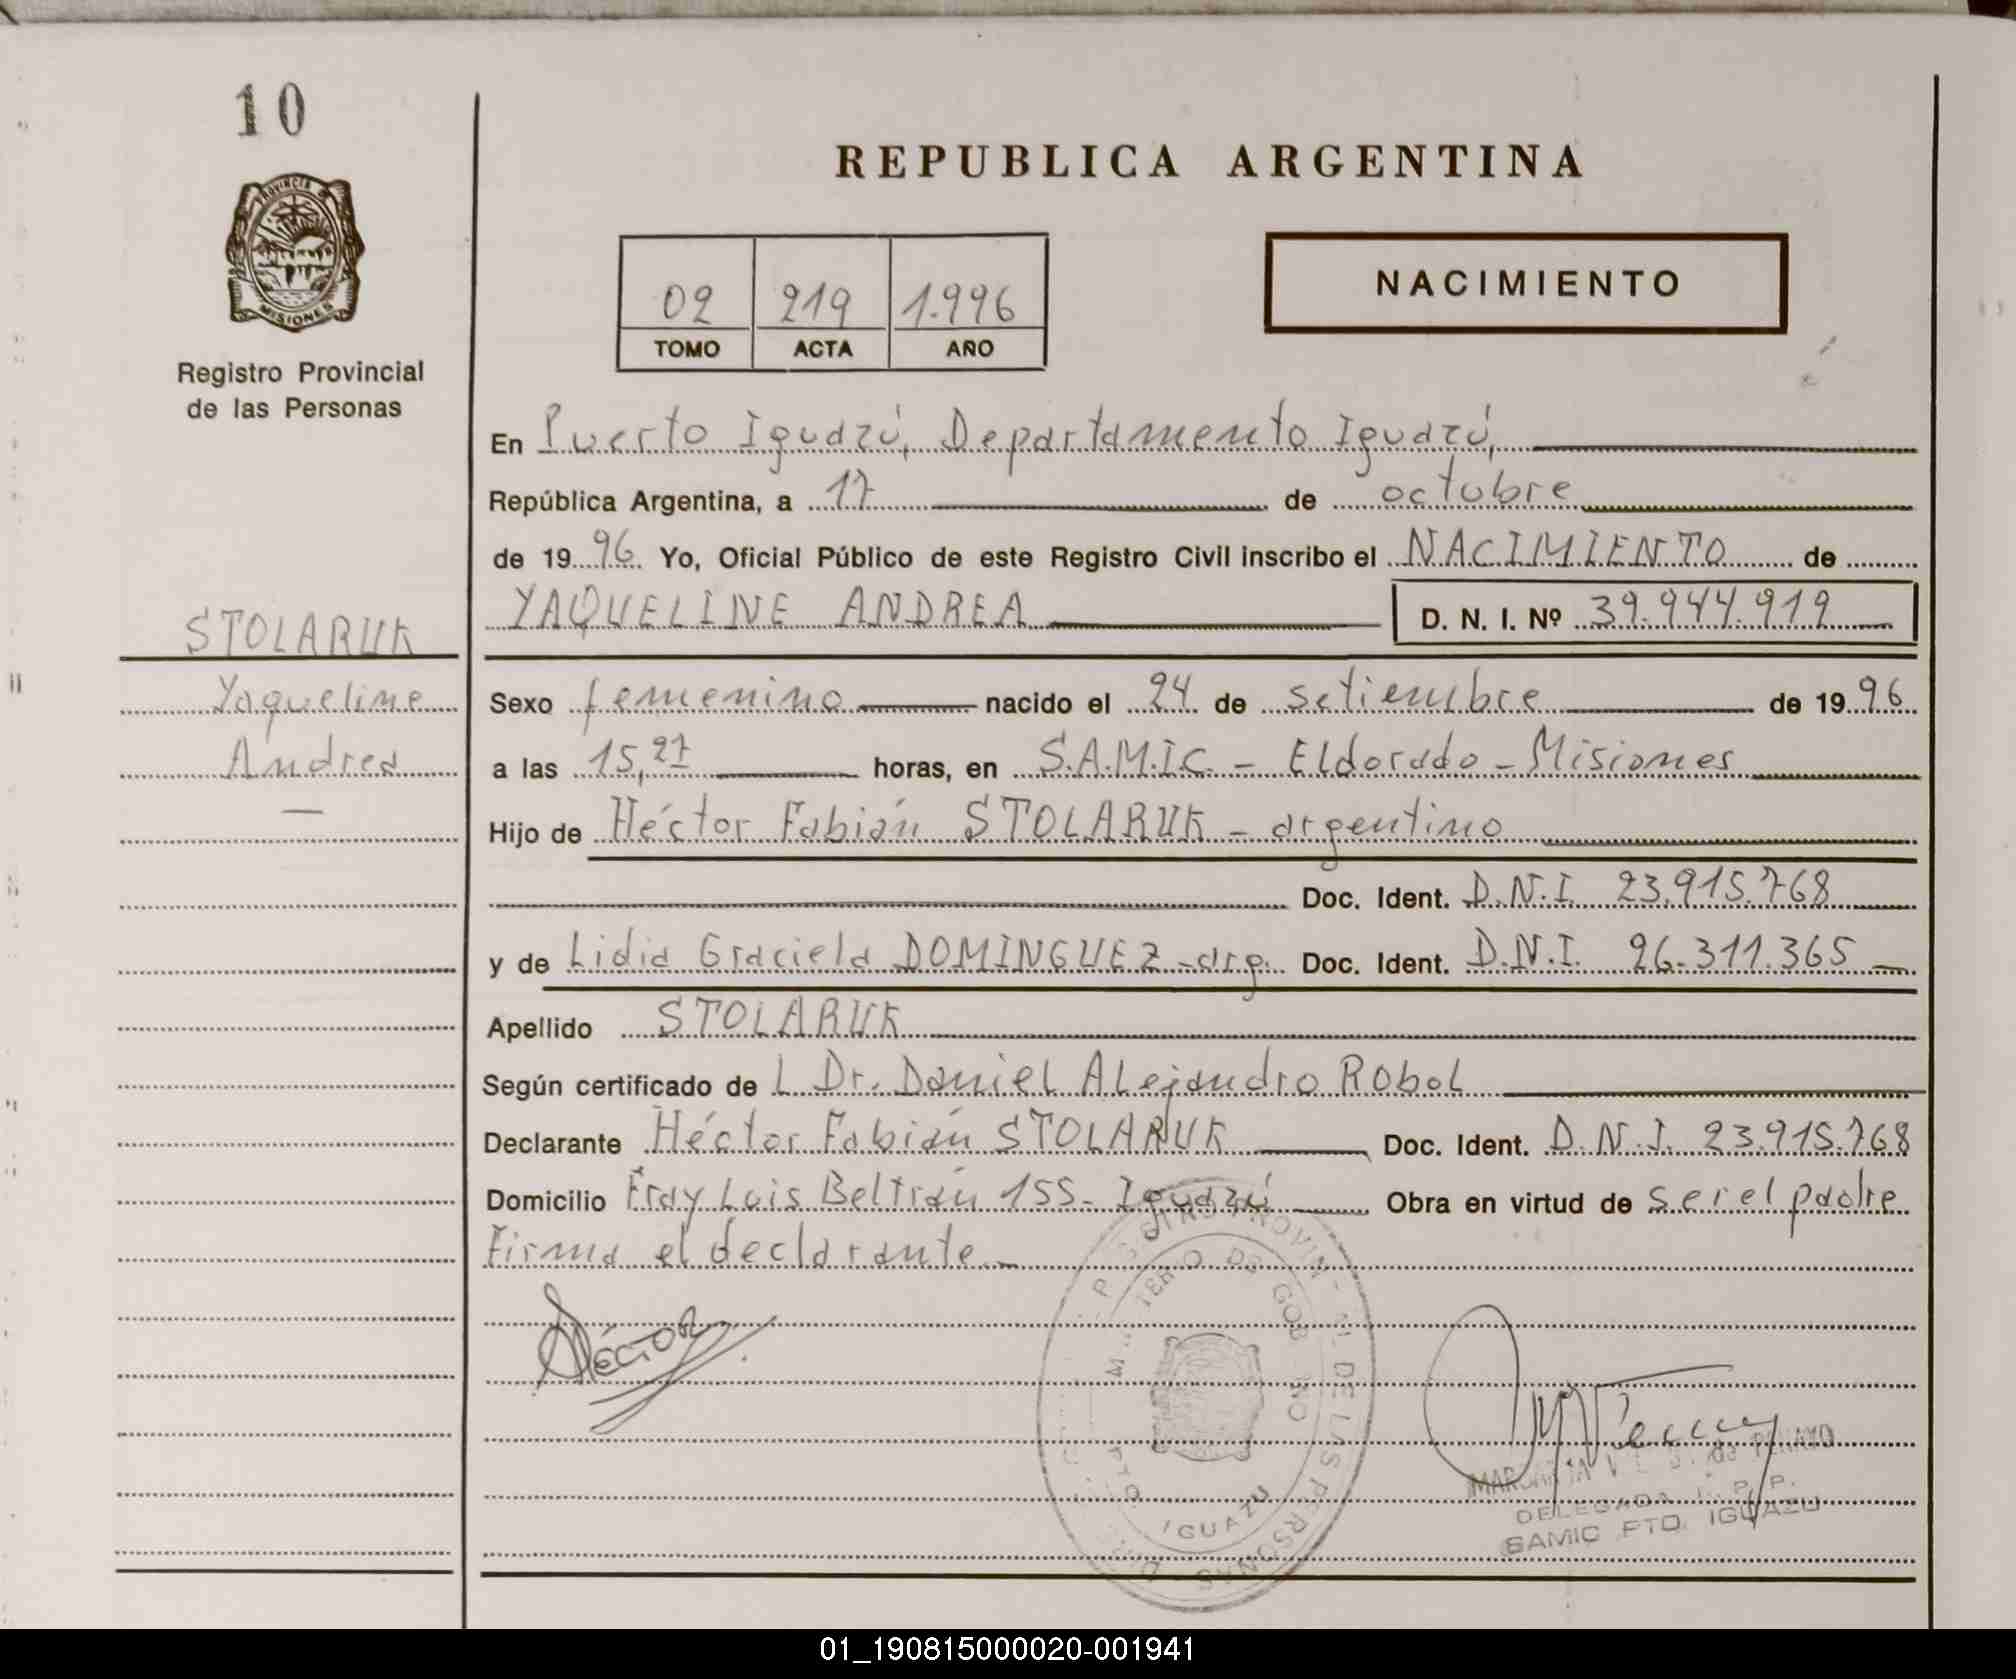 10
PROVINCIA DE
MISIONES
Registro Provincial
de las Personas
REPUBLICA ARGENTINA
02 219 1.996
TOMO ACTA AÑO
NACIMIENTO
En Puerto Iguazú, Departamento Iguazú,
República Argentina, a 17 de octubre
de 1996 Yo, Oficial Público de este Registro Civil inscribo el NACIMIENTO de
YAQUELINE ANDREA D. N. I. Nº 39.944.919
STOLARUK
Yaqueline
Andrea
Sexo femenino nacido el 24 de setiembre de 1996
a las 15,27 horas, en S.A.M.I.C. - Eldorado - Misiones
Hijo de Héctor Fabián STOLARUK - argentino
Doc. Ident. D.N.I. 23.915.768
y de Lidia Graciela DOMINGUEZ - arg. Doc. Ident. D.N.I. 26.311.365
Apellido STOLARUK
Según certificado de L Dr. Daniel Alejandro Robol
Declarante Héctor Fabián STOLARUK Doc. Ident. D.N.I. 23.915.768
Domicilio Fray Luis Beltrán 155 - Iguazú Obra en virtud de ser el padre
Firma el declarante.-
Héctor
DE LAS PERSONAS
PTO IGUAZU
DELEGADA R. P. P.
SAMIC PTO. IGUAZU
01_190815000020-001941